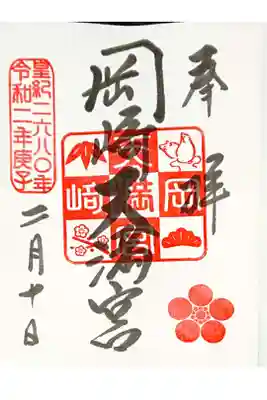 奉拝
岡崎天満宮
岡
満
崎
皇紀二六八〇年
令和二年庚子
二月十日